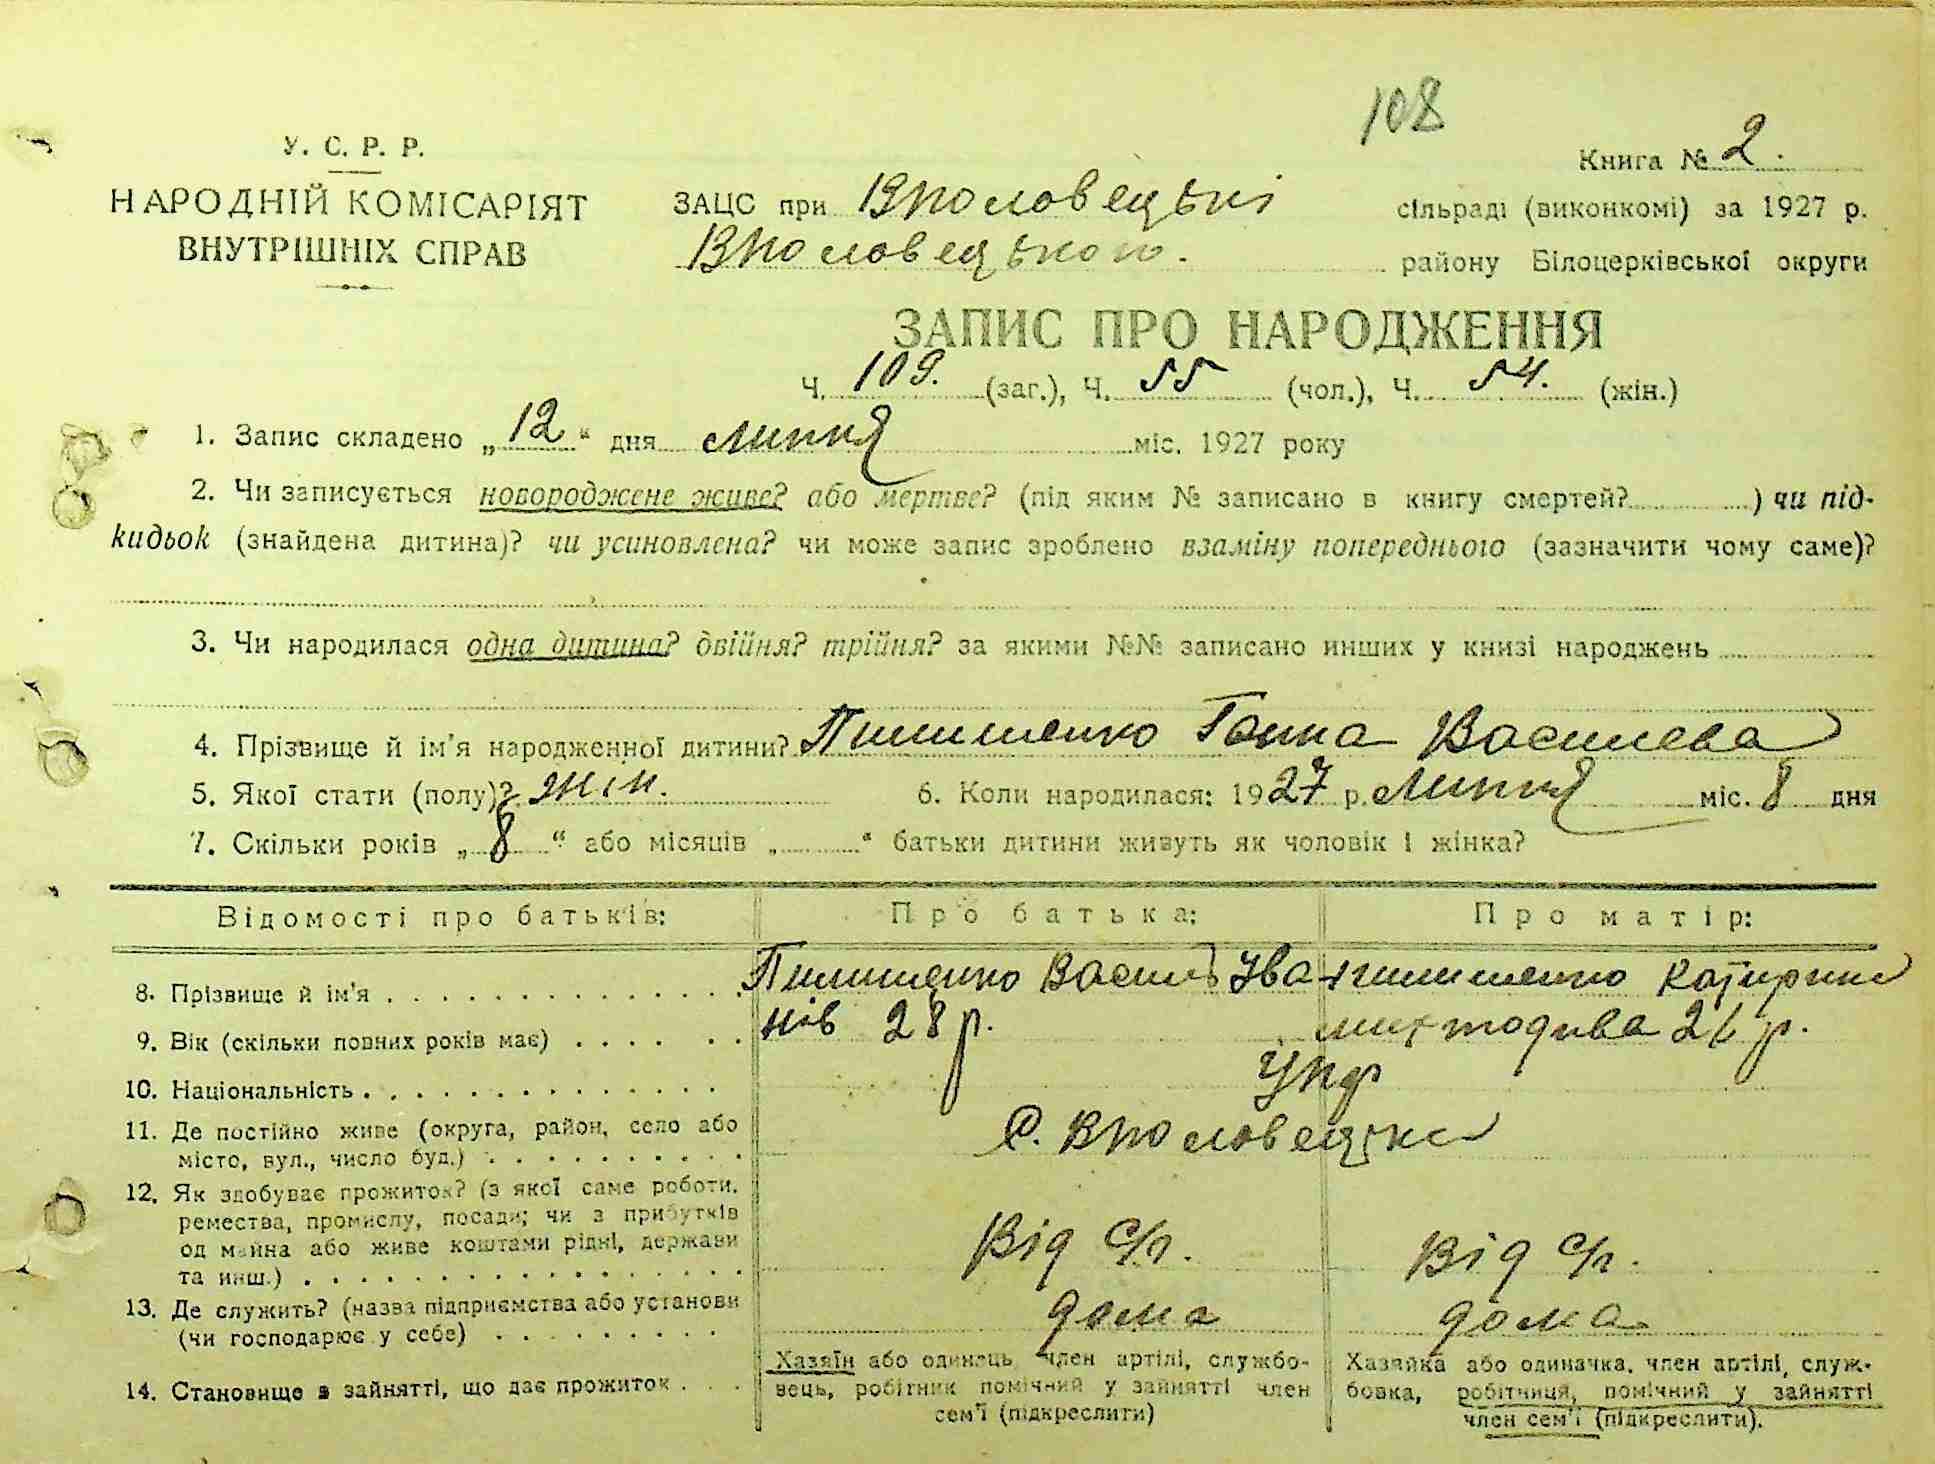 108
У. С. Р. Р.
НАРОДНІЙ КОМІСАРІЯТ
ВНУТРІШНІХ СПРАВ
Книга № 2.
ЗАЦС при Вполовецькі сільраді (виконкомі) за 1927 р.
Вполовецького. району Білоцерківської округи
ЗАПИС ПРО НАРОДЖЕННЯ
Ч. 109. (заг.), Ч. 55 (чол.), Ч. 54. (жін.)
1. Запис складено „12“ дня липня міс. 1927 року
2. Чи записується новороджене живе? або мертве? (під яким № записано в книгу смертей? ) чи під-
кидьок (знайдена дитина)? чи усиновлена? чи може запис зроблено взаміну попереднього (зазначити чому саме)?
3. Чи народилася одна дитина? двійня? трійня? за якими №№ записано инших у книзі народжень
4. Прізвище й ім'я народженної дитини? Пилипенко Ганна Василева
5. Якої стати (полу)? жін. 6. Коли народилася: 1927 р. липня міс. 8 дня
7. Скільки років „8“ або місяців „ “ батьки дитини живуть як чоловік і жінка?
Відомості про батьків: Про батька: Про матір:
8. Прізвище й ім'я Пилипенко Василь Іва- Пилипенко Катирина
9. Вік (скільки повних років має) нів 28 р. 26 р.
10. Національність Укр
11. Де постійно живе (округа, район, село або
місто, вул., число буд.) с. Вполовецьке
12. Як здобуває прожиток? (з якої саме роботи,
ремества, промислу, посади; чи з прибутків
од майна або живе коштами рідні, держави
та инш.) Від с/г. Від с/г.
13. Де служить? (назва підприємства або установи
(чи господарює у себе) дома дома
14. Становище в зайнятті, що дає прожиток
Хазяїн або одинець, член артілі, службо-
вець, робітник помічний у зайнятті член
сем'ї (підкреслити)
Хазяйка або одиначка, член артілі, служ-
бовка, робітниця, помічний у зайнятті
член сем'ї (підкреслити).